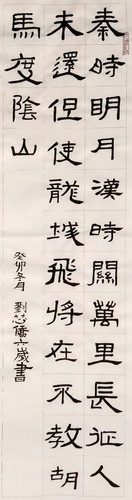 秦時明月漢時關萬里長征人
未還但使龍城飛将在不教胡
馬度陰山
癸卯冬月 劉芯僑六歲書